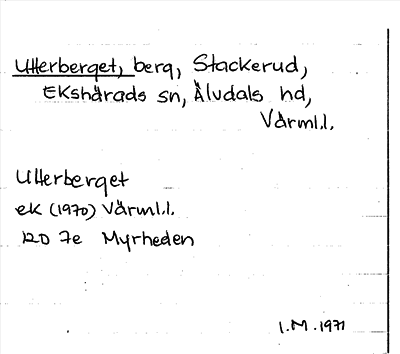 Utterberget, berg, Stackerud,
Ekshärads sn, Älvdals hd,
Värml.l.
Utterberget
ek (1970) Värml.l.
12D 7e Myrheden
I.M. 1971